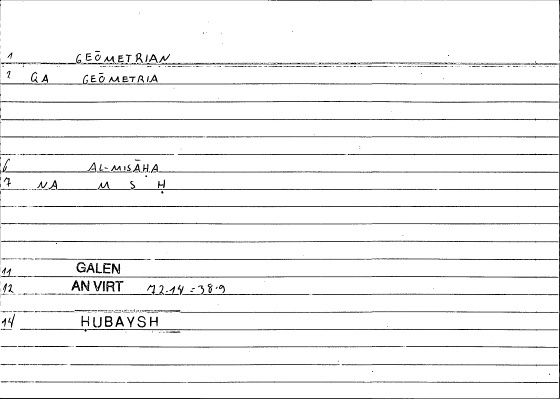 1 GEŌMETRIAN
2 GA GEŌMETRIA
6 AL-MISĀḤA
7 NA M S Ḥ
11 GALEN
12 AN VIRT 72.14 = 38.9
14 HUBAYSH